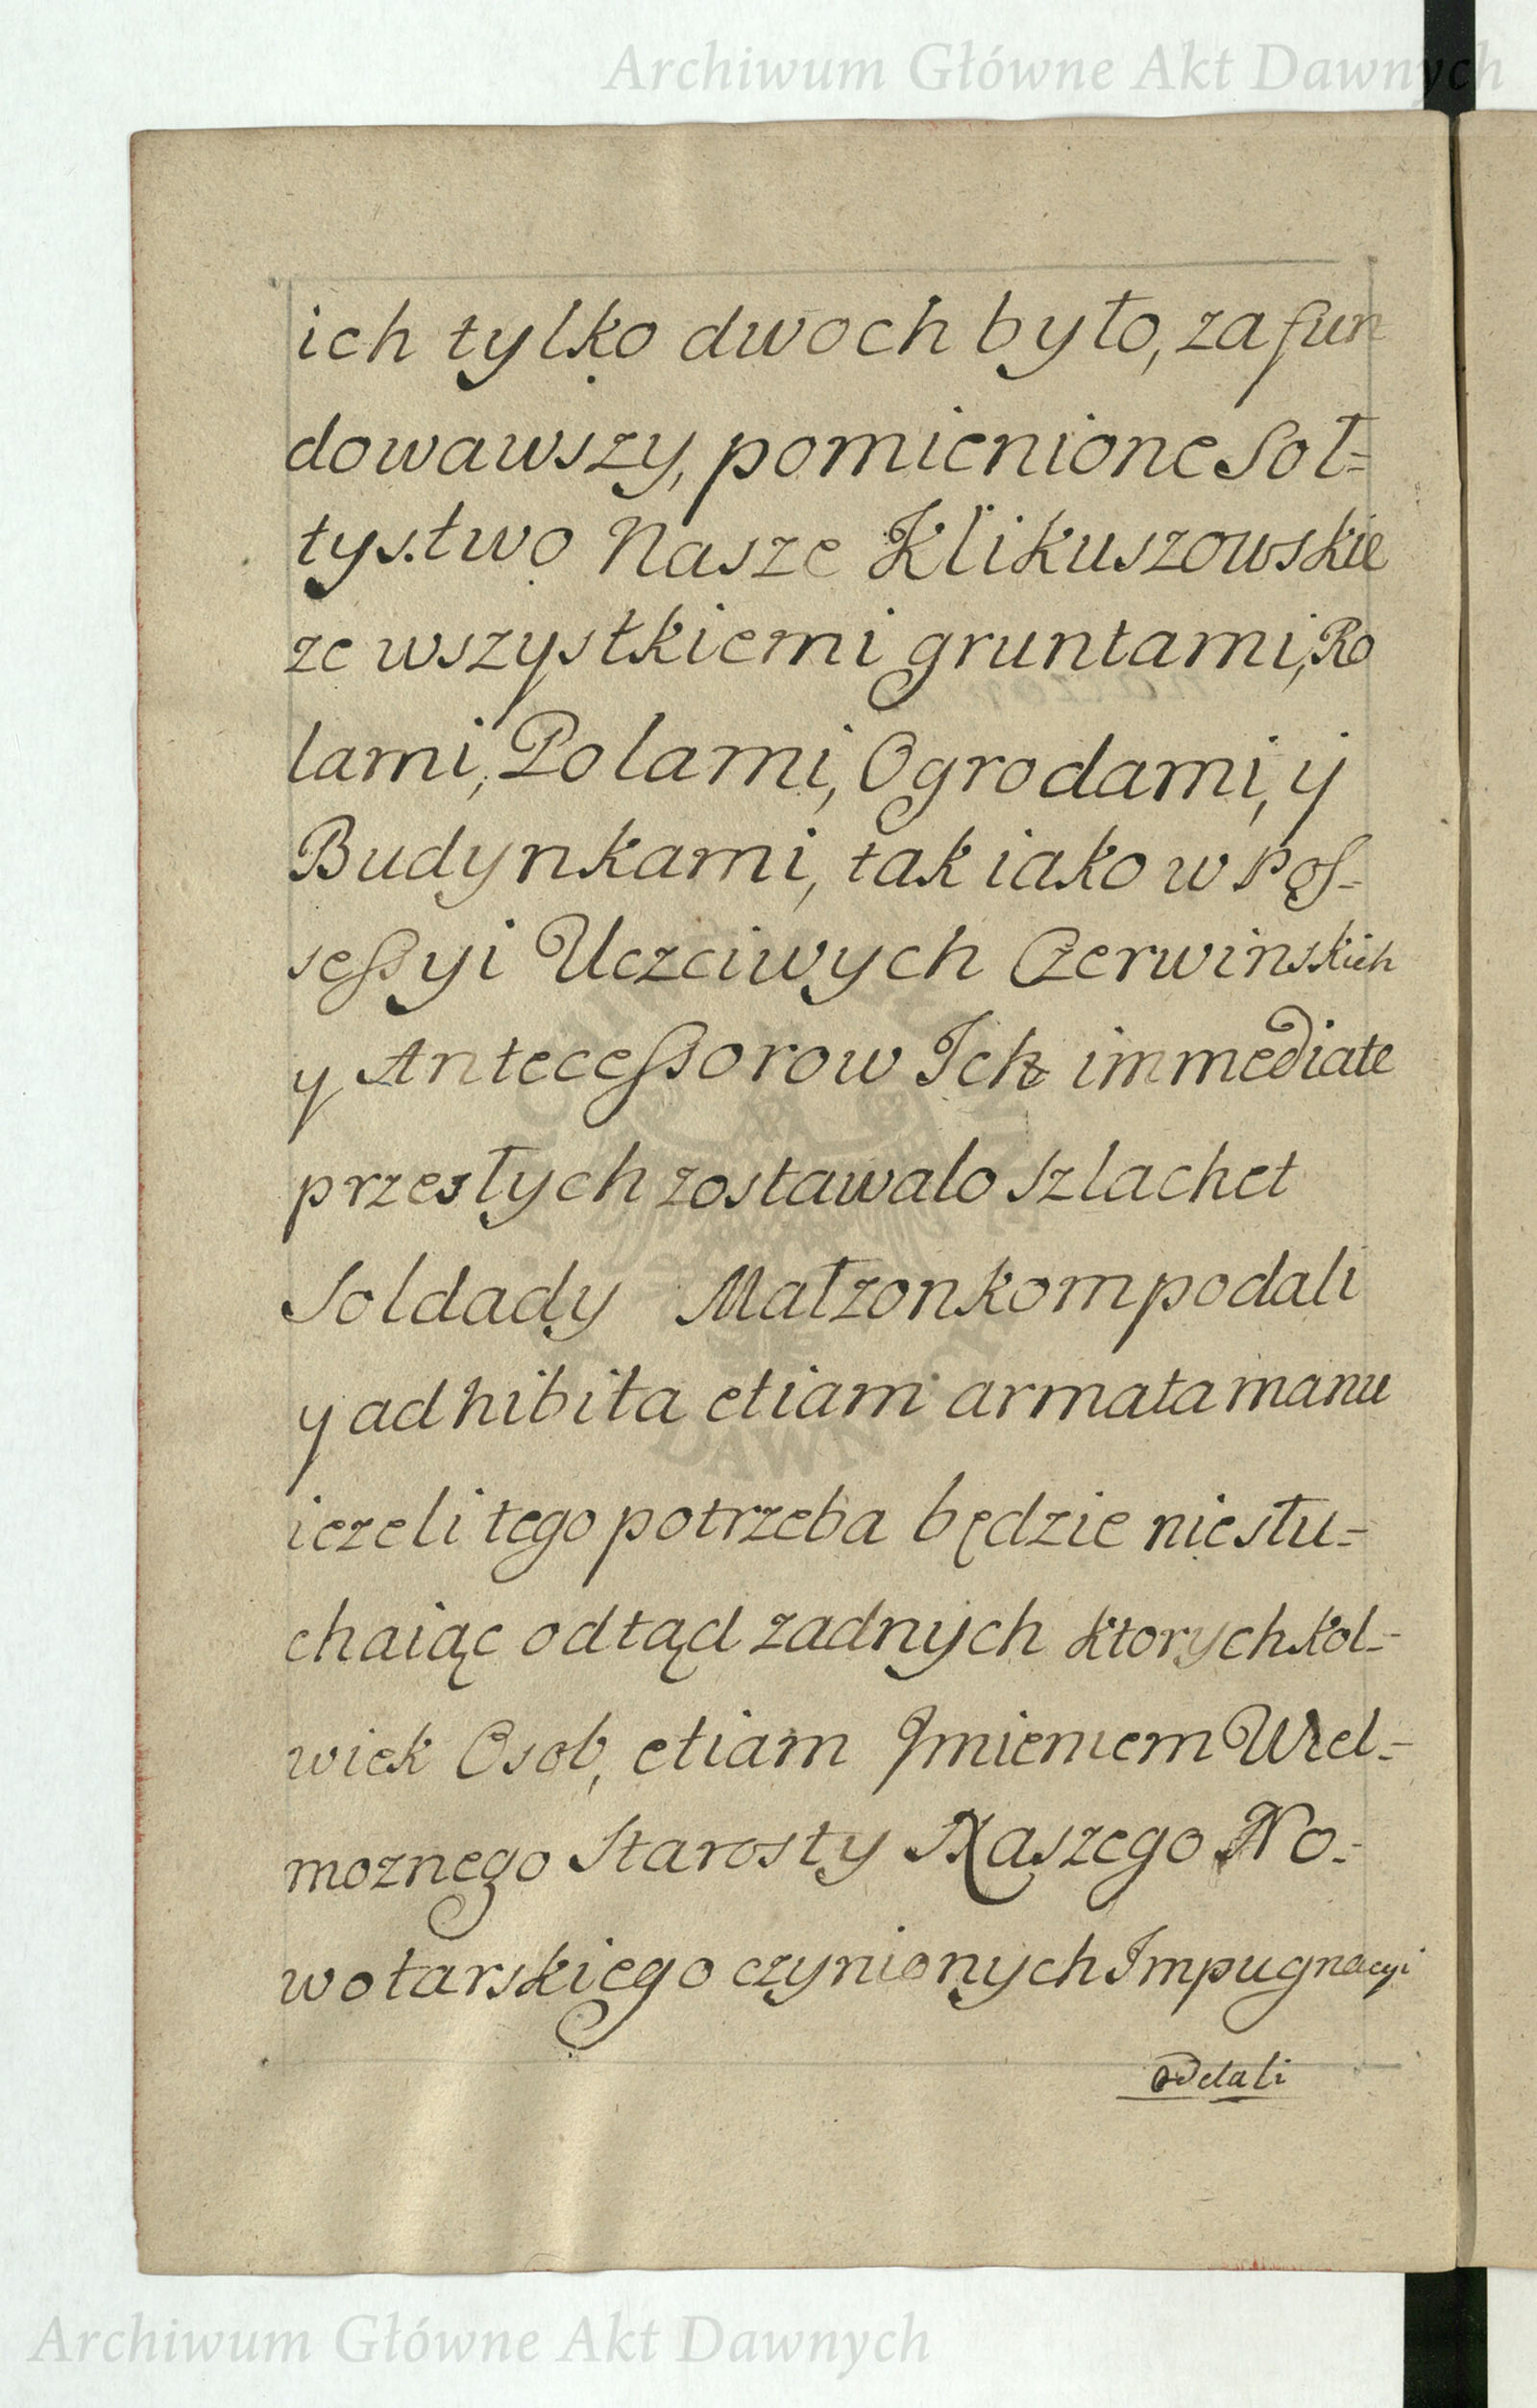 Archiwum Główne Akt Dawnych
ich tylko dwoch było, zafun
dowawszy, pomienione Soł=
tystwo Nasze Klikuszowskie
ze wszystkiemi gruntami, Ro
lami, Polami, Ogrodami, y
Budynkami, tak iako w Pos-
sessyi Uczciwych Czerwinskich
y Antecessorow Ich immediate
przesłych zostawalo Szlachet
Soldady Małzonkom podali
y adhibita etiam armata manu
iezeli tego potrzeba będzie niesłu=
chaiąc odtąd zadnych ktorychkol=
wiek Osob, etiam Imieniem Wiel=
moznego Starosty Naszego No=
wotarskiego czynionych Impugnacyi
Archiwum Główne Akt Dawnych